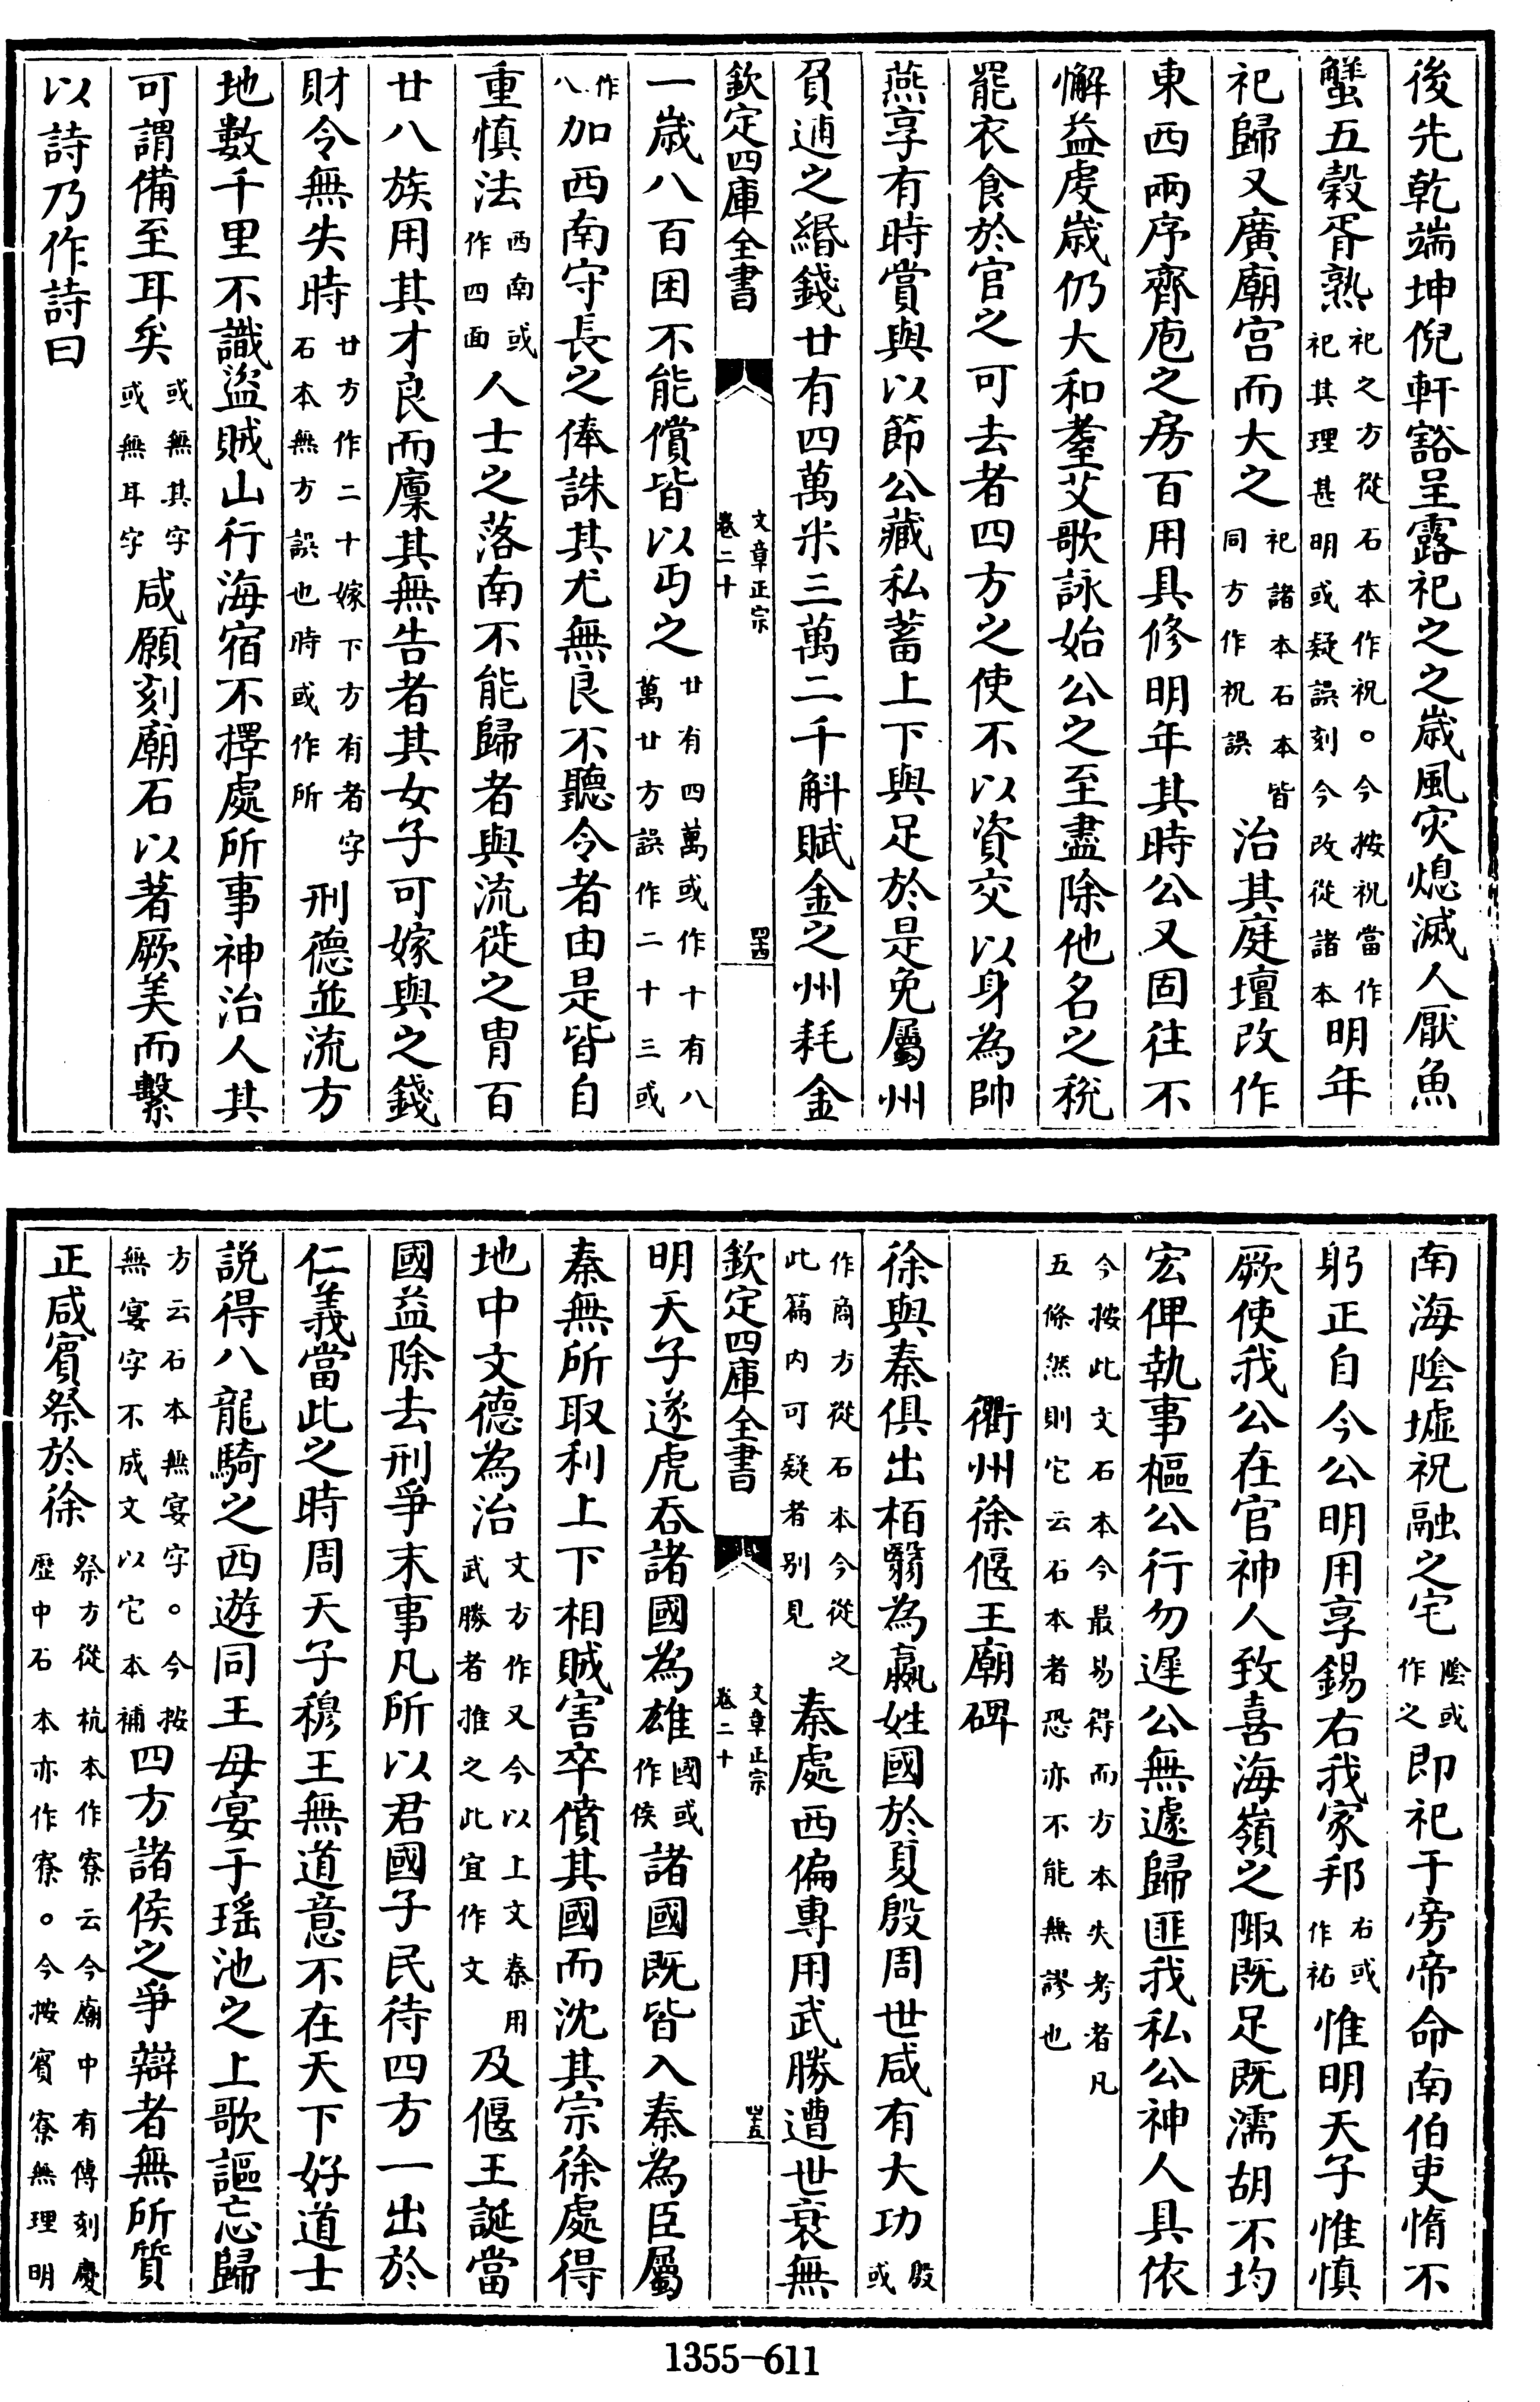 後先乾端坤倪軒豁呈露祀之之歲風灾熄滅人厭魚
蟹五穀胥熟祀之方從石本作祝。今按祝當作祀其理甚明或疑誤刻今改從諸本明年
祀歸又廣廟宮而大之祀諸本石本皆同方作祝誤治其庭壇改作
東西兩序齊庖之房百用具修明年其時公又固往不
懈益虔歲仍大和耋艾歌詠始公之至盡除他名之稅
罷衣食於官之可去者四方之使不以資交以身為帥
燕享有時賞與以節公藏私蓄上下與足於是免屬州
負逋之緡錢廿有四萬米三萬二千斛賦金之州耗金
欽定四庫全書
文章正宗
卷二十
四十四
一歲八百困不能償皆以丐之廿有四萬或作十有八萬廿方誤作二十三或
作八加西南守長之俸誅其尤無良不聽令者由是皆自
重慎法西南或作四面人士之落南不能歸者與流徙之胄百
廿八族用其才良而廩其無告者其女子可嫁與之錢
財令無失時廿方作二十嫁下方有者字石本無方誤也時或作所刑德並流方
地數千里不識盜賊山行海宿不擇處所事神治人其
可謂備至耳矣或無其字或無耳字咸願刻廟石以著厥美而繫
以詩乃作詩曰
南海陰墟祝融之宅陰或作之即祀于旁帝命南伯吏惰不
躬正自今公明用享錫右我家邦右或作祐惟明天子惟慎
厥使我公在官神人致喜海嶺之陬既足既濡胡不均
宏俾執事樞公行勿遲公無遽歸匪我私公神人具依
今按此文石本今最易得而方本失考者凡五條然則它云石本者恐亦不能無謬也
衢州徐偃王廟碑
徐與秦俱出栢翳為嬴姓國於夏殷周世咸有大功殷或
作商方從石本今從之此篇內可疑者別見秦處西偏專用武勝遭世衰無
欽定四庫全書
文章正宗
卷二十
四十五
明天子遂虎吞諸國為雄國或作侯諸國既皆入秦為臣屬
秦無所取利上下相賊害卒僨其國而沈其宗徐處得
地中文德為治文方作又今以上文秦用武勝者推之此宜作文及偃王誕當
國益除去刑爭末事凡所以君國子民待四方一出於
仁義當此之時周天子穆王無道意不在天下好道士
說得八龍騎之西遊同王母宴于瑤池之上歌謳忘歸
方云石本無宴字。今按無宴字不成文以它本補四方諸侯之爭辯者無所質
正咸賓祭於徐祭方從杭本作寮云今廟中有傳刻慶歷中石本亦作寮。今按賓寮無理明
1355-611